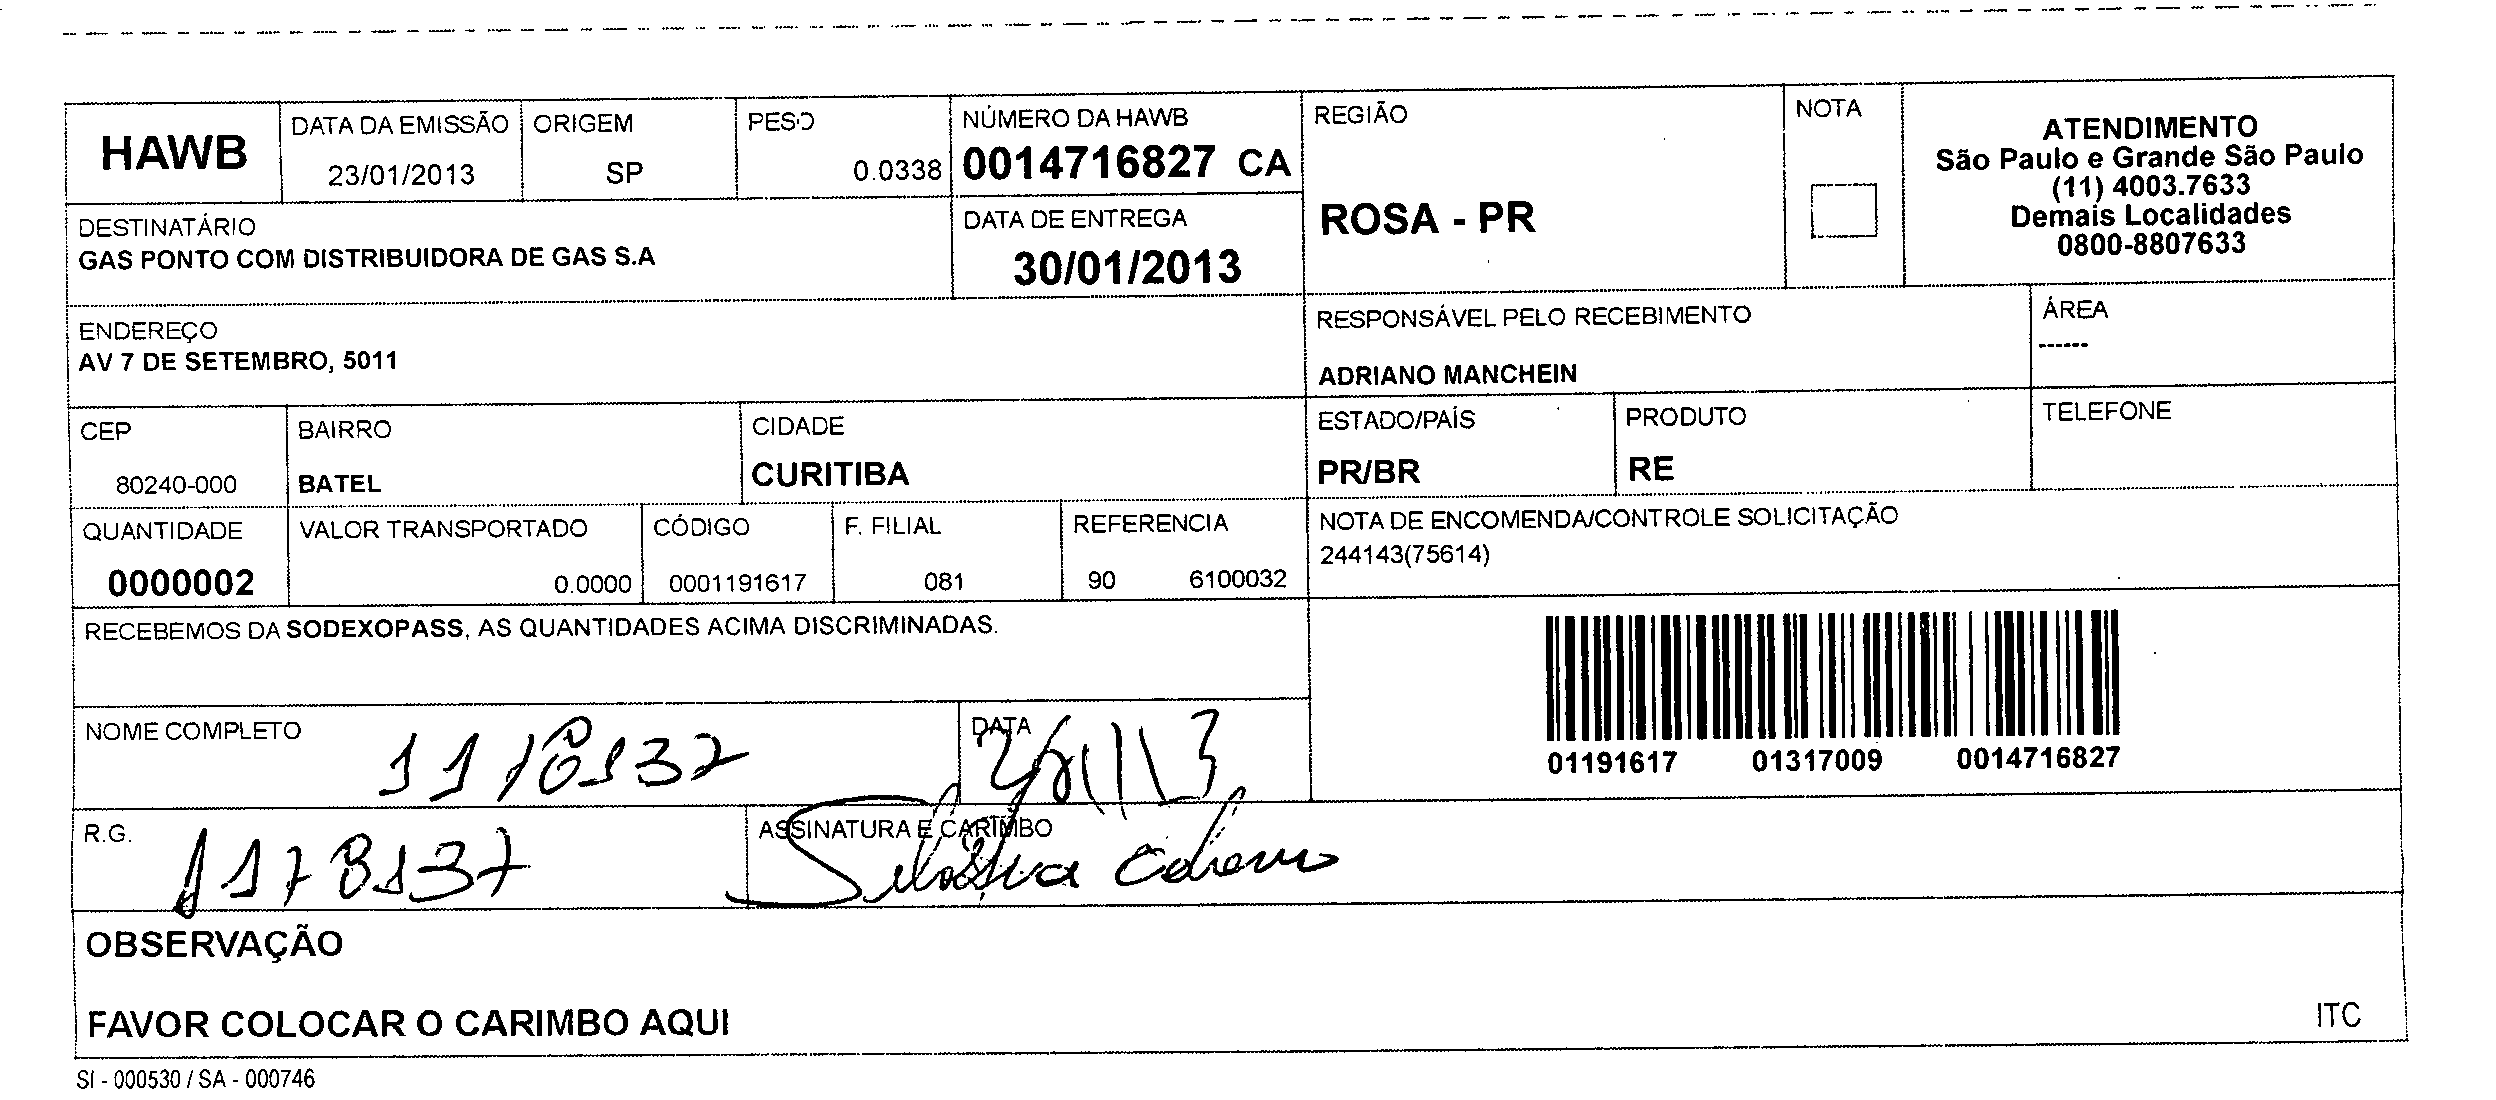 HAWB
DATA DA EMISSÃO
23/01/2013
ORIGEM
SP
PESO
0.0338
NÚMERO DA HAWB
0014716827 CA
REGIÃO
ROSA - PR
NOTA
ATENDIMENTO
São Paulo e Grande São Paulo
(11) 4003.7633
Demais Localidades
0800-8807633
DESTINATÁRIO
GAS PONTO COM DISTRIBUIDORA DE GAS S.A
DATA DE ENTREGA
30/01/2013
ENDEREÇO
AV 7 DE SETEMBRO, 5011
RESPONSÁVEL PELO RECEBIMENTO
ADRIANO MANCHEIN
ÁREA
------
CEP
80240-000
BAIRRO
BATEL
CIDADE
CURITIBA
ESTADO/PAÍS
PR/BR
PRODUTO
RE
TELEFONE
QUANTIDADE
0000002
VALOR TRANSPORTADO
0.0000
CÓDIGO
0001191617
F. FILIAL
081
REFERENCIA
90 6100032
NOTA DE ENCOMENDA/CONTROLE SOLICITAÇÃO
244143(75614)
RECEBEMOS DA SODEXOPASS, AS QUANTIDADES ACIMA DISCRIMINADAS.
01191617 01317009 0014716827
NOME COMPLETO
DATA
R.G.
1178137
ASSINATURA E CARIMBO
OBSERVAÇÃO
FAVOR COLOCAR O CARIMBO AQUI
ITC
SI - 000530 / SA - 000746